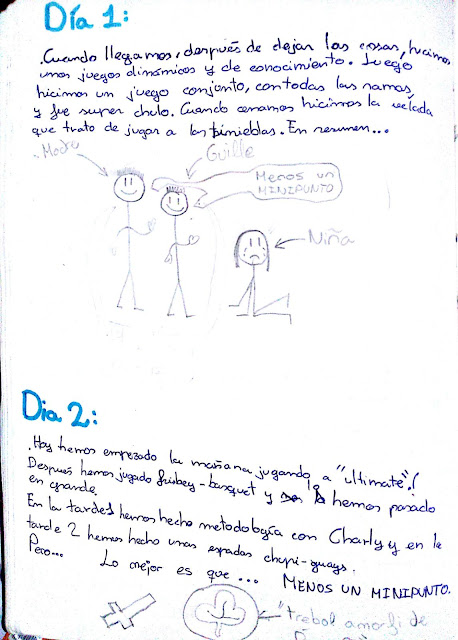 Día 1:
.Cuando llegamos, después de dejar las cosas, hicimos
unos juegos dinámicos y de conocimiento. Luego
hicimos un juego conjunto, con todas las ramas,
y fue super chulo. Cuando cenamos hicimos la velada
que trato de jugar a las tinieblas. En resumen...
Guille
Menos un
MINIPUNTO
Niña
Dia 2:
.Hoy hemos empezado la mañana jugando a "ultimate".
Despues hemos jugado frisbey-basquet y lo hemos pasado
en grande.
En la tarde 1 hemos hecho metodología con Charly y en la
tarde 2 hemos hecho unas espadas chupi-guays.
Pero... Lo mejor es que... MENOS UN MINIPUNTO.
"trebol amorfi de